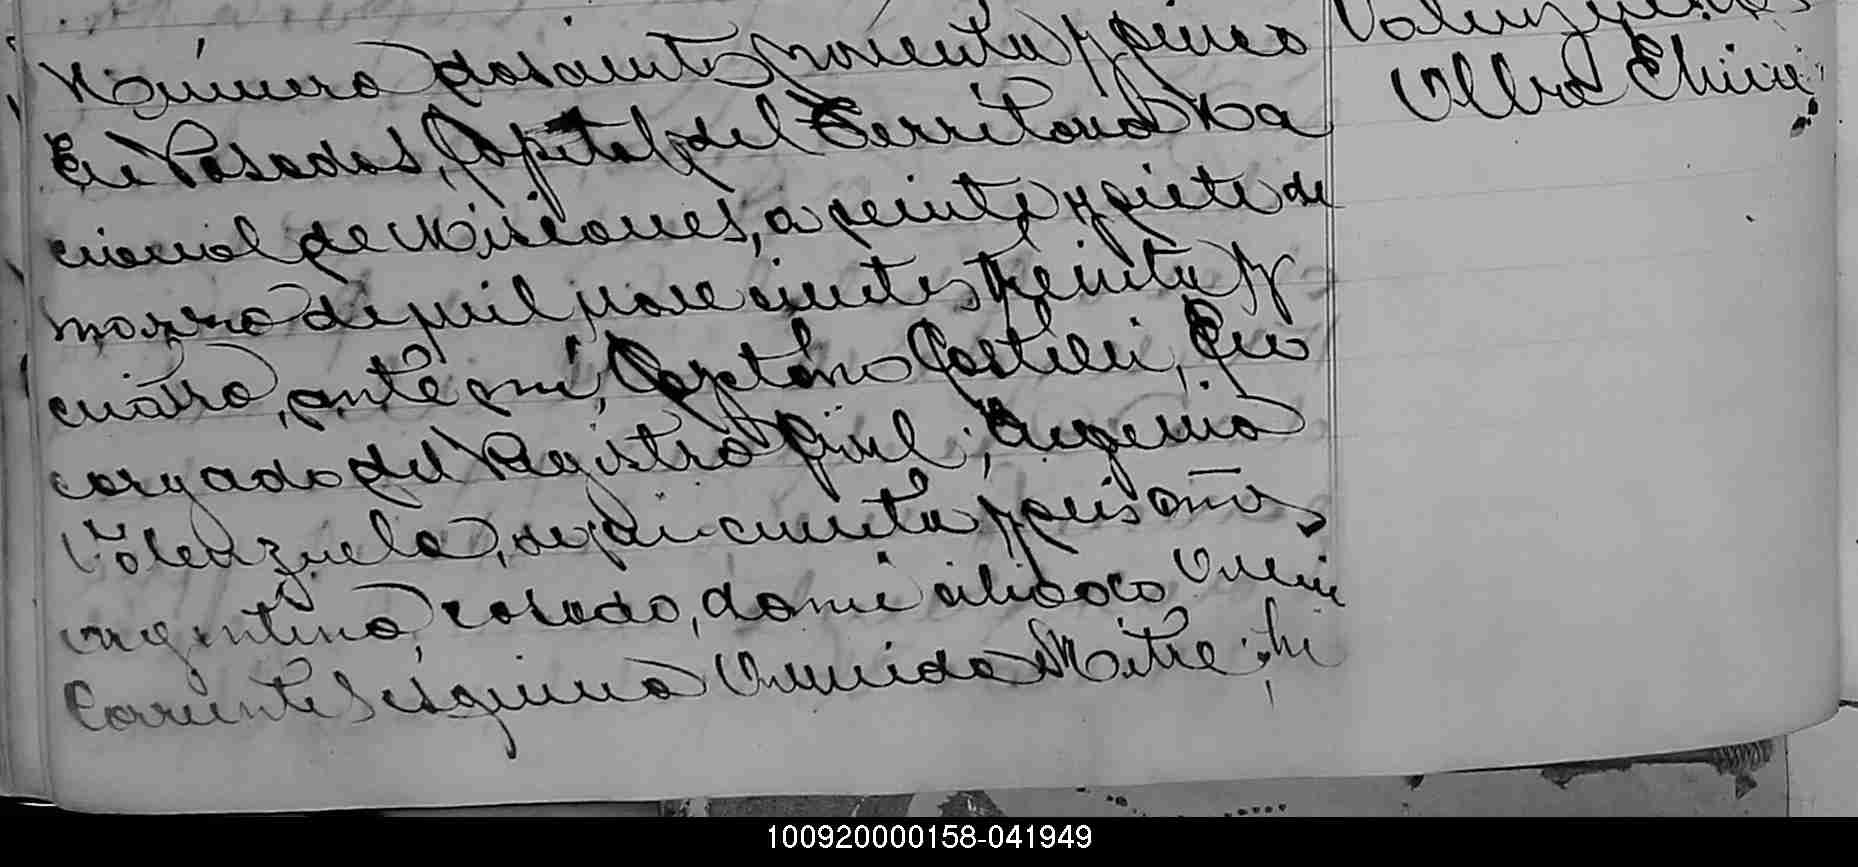 Número doscientos noventa y cinco
En Posadas, Capital del Territorio Na
cional de Misiones, a veinte y siete de
marzo de mil novecientos treinta y
cuatro, ante mí, Cayetano Castelli, En
cargado del Registro Civil; Eugenio
Valenzuela, de cincuenta y seis años
argentino, casado, domiciliado
Corrientes esquina Avenida Mitre, hi
Valenzuela
Alba Elvira
100920000158-041949